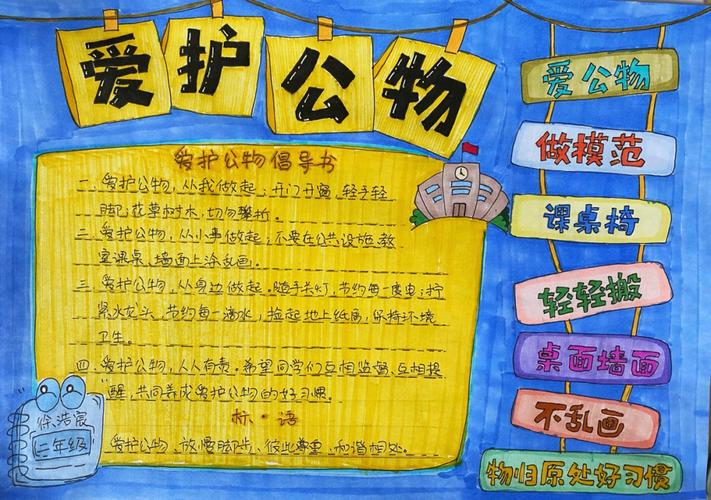 爱护公物
爱护公物倡导书
一.爱护公物,从我做起:开门开窗,轻手轻
脚;花草树木,切勿攀折。
二.爱护公物,从小事做起;不要在公共设施、教
室课桌、墙面上涂乱画。
三.爱护公物,从身边做起。随手关灯,节约每一度电;拧
紧水龙头,节约每一滴水,捡起地上纸屑,保持环境
卫生。
四.爱护公物,人人有责。希望同学们互相监督、互相提
醒,共同养成爱护公物的好习惯。
标·语
爱护公物、放慢脚步、彼此尊重、和谐相处。
徐浩宸
二年级
爱公物
做模范
课桌椅
轻轻搬
桌面墙面
不乱画
物归原处好习惯